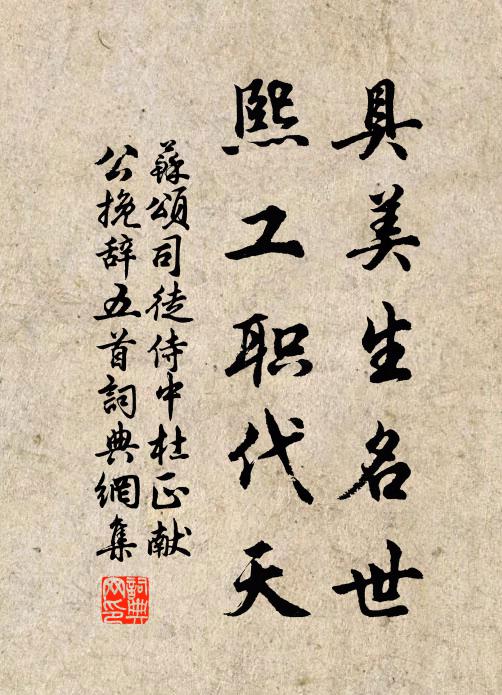 具美生名世
熙工职代天
蘇頌司徒侍中杜正献
公挽辞五首詞典網集
詞典網印